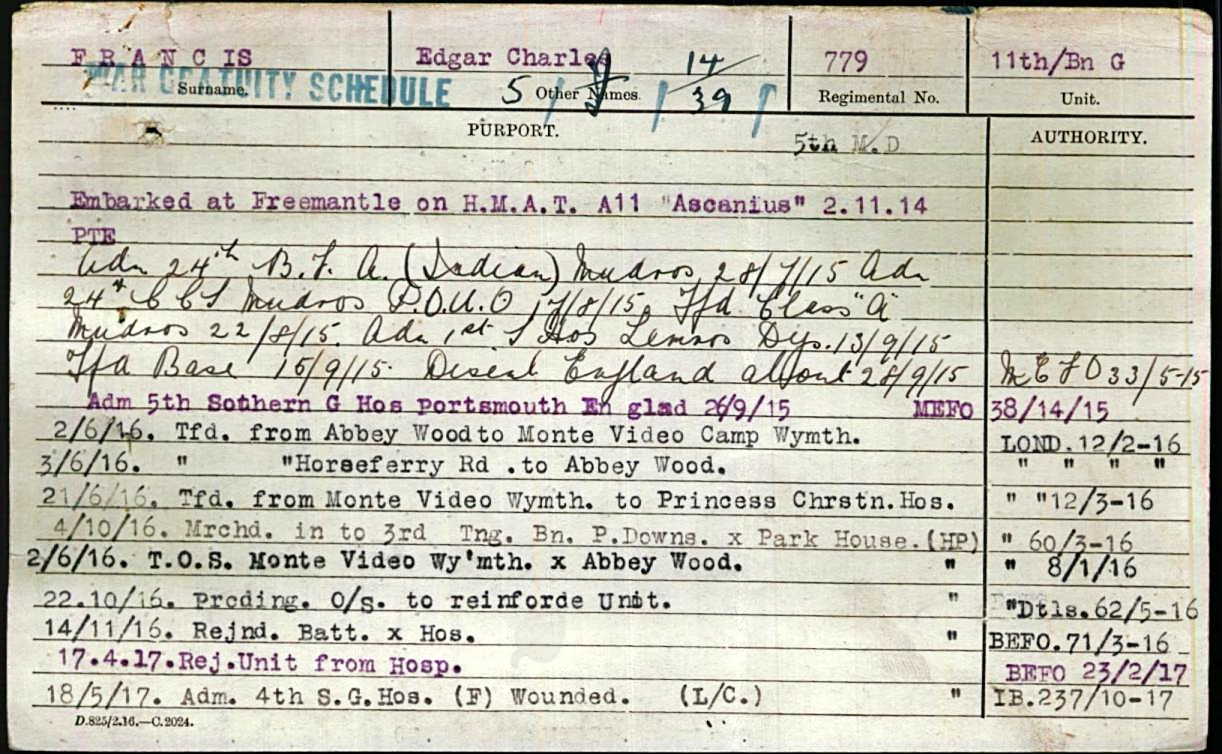 FRANCIS Edgar Charles 14/39 779 11th/Bn G
WAR GRATUITY SCHEDULE
Surname. 5 Other Names. Regimental No. Unit.
PURPORT. 5th M.D AUTHORITY.
Embarked at Freemantle on H.M.A.T. A11 "Ascanius" 2.11.14
PTE
Adm 24th B.F. A. (Indian) Mudros 28/7/15 Adm
24th C C S Mudros P.O.U.O 17/8/15. Tfd Class "A"
Mudros 22/8/15. Adm 1st S Hos Lemnos Dys. 13/9/15
Tfd Base 15/9/15. Disemb England about 28/9/15 MEFO 33/5-15
Adm 5th Sothern G Hos Portsmouth En glad 26/9/15 MEFO 38/14/15
2/6/16. Tfd. from Abbey Wood to Monte Video Camp Wymth. LOND.12/2-16
3/6/16. " "Horseferry Rd .to Abbey Wood. " " " "
21/6/16. Tfd. from Monte Video Wymth. to Princess Chrstn.Hos. " "12/3-16
4/10/16. Mrchd. in to 3rd Tng. Bn. P.Downs. x Park House.(HP) " 60/3-16
2/6/16. T.O.S. Monte Video Wy'mth. x Abbey Wood. " " 8/1/16
22.10/16. Prcding. O/s. to reinforde Unit. " "Dtls.62/5-16
14/11/16. Rejnd. Batt. x Hos. " BEFO.71/3-16
17.4.17.Rej.Unit from Hosp. BEFO 23/2/17
18/5/17. Adm. 4th S.G.Hos. (F) Wounded. (L/C.) " IB.237/10-17
D.825/2.16.—C.2024.